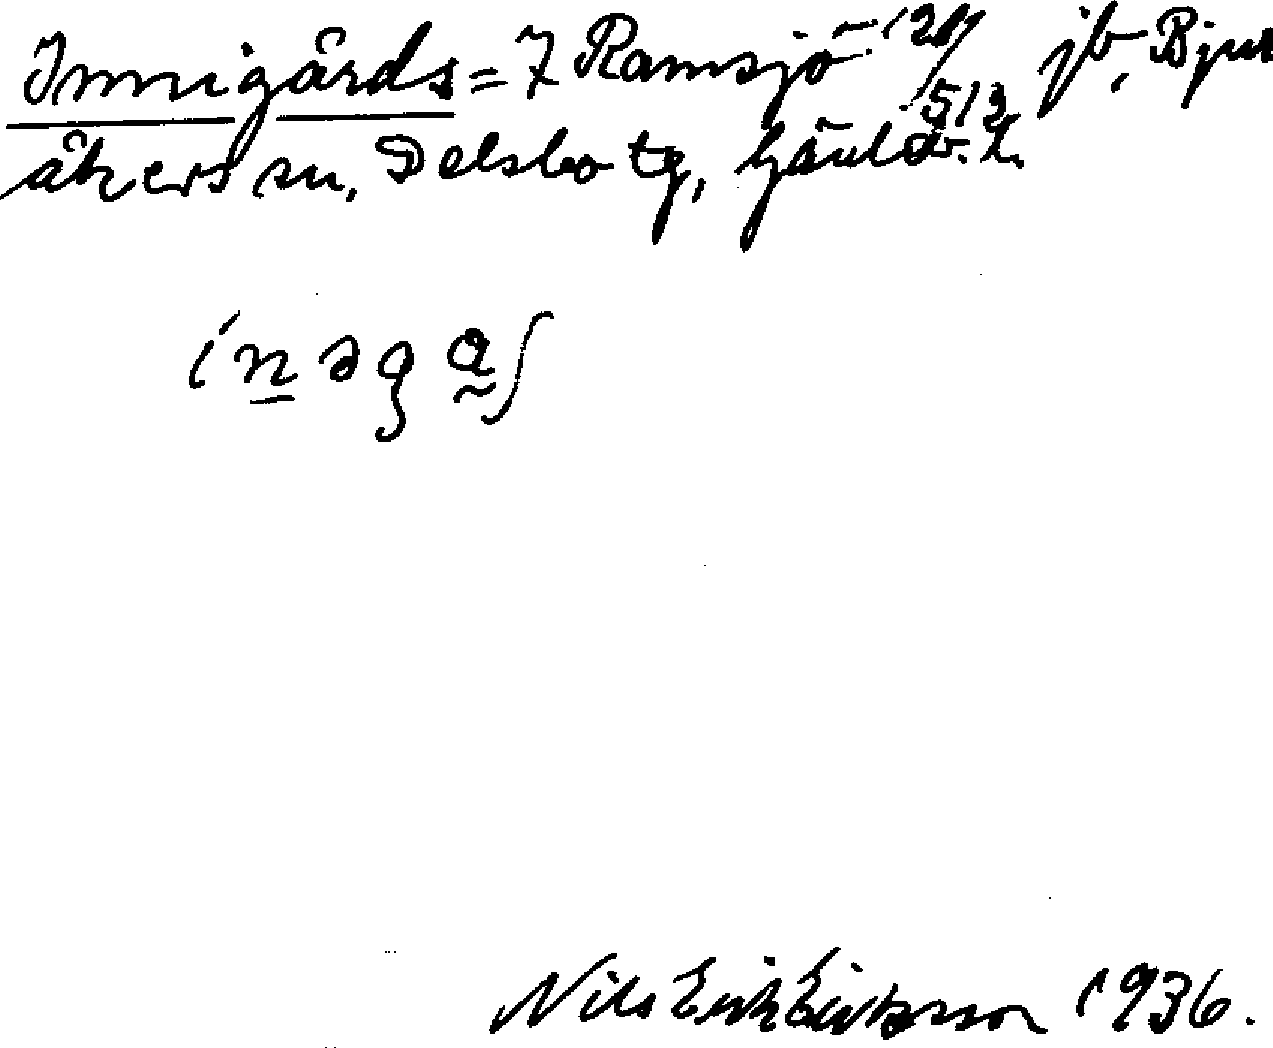 Innigårds = 7 Ramsjö 1 21/513 jb, Bjur
åkers sn, Delsbo tg, Gävleb. l.
Nils Erik Eriksson 1936.